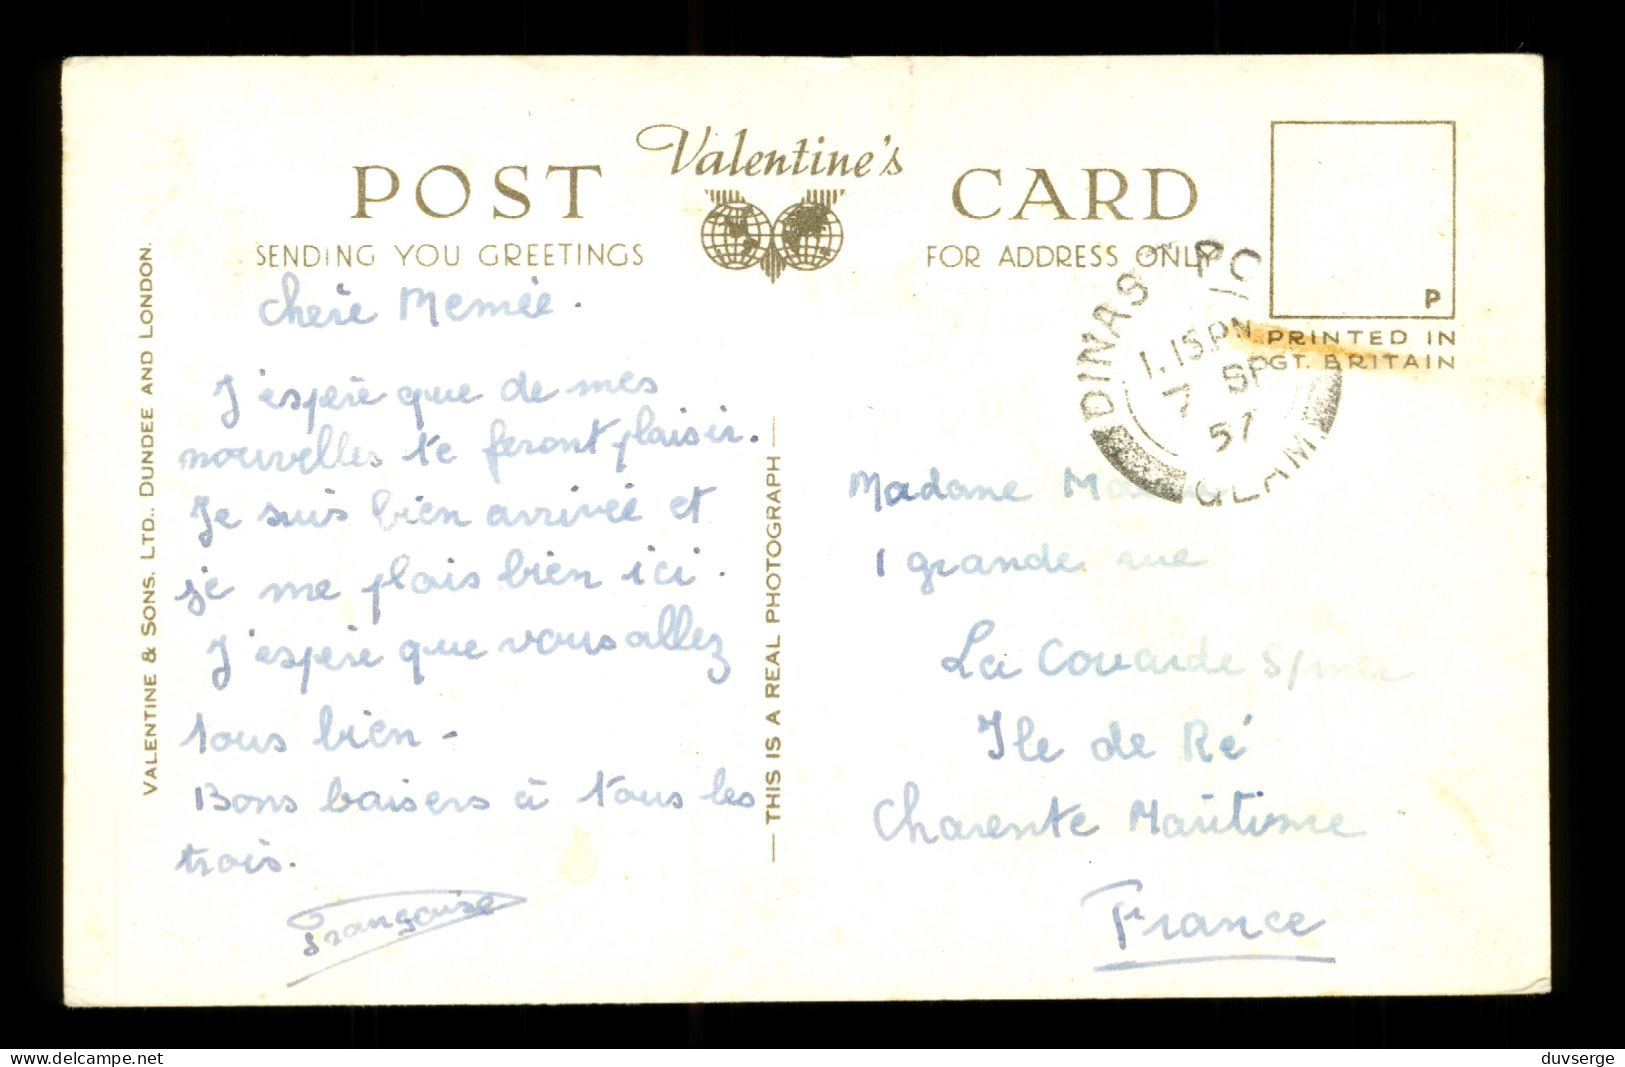 Valentine's
POST CARD
SENDING YOU GREETINGS
FOR ADDRESS ONLY
P
PRINTED IN
GT. BRITAIN
DINAS PO
1.15 PM
7 SP
57
GLAM.
VALENTINE & SONS. LTD., DUNDEE AND LONDON.
Chère Memée.
J'espère que de mes
nouvelles te feront plaisir.
Je suis bien arrivée et
je me plais bien ici.
J'espère que vous allez
tous bien -
Bons baisers à tous les
trois.
Françoise
THIS IS A REAL PHOTOGRAPH
Madame
1 grande rue
La Couarde S/mer
Ile de Ré
Charente Maritime
France
Delcampe.net
duvserge